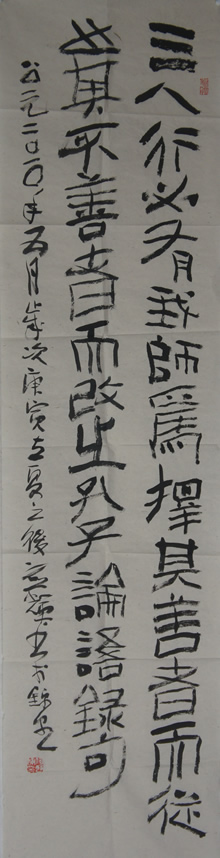 三人行必有我師焉擇其善者而從
之其不善者而改之孔子論語錄句
公元二〇一〇年五月歲次庚寅立夏之後